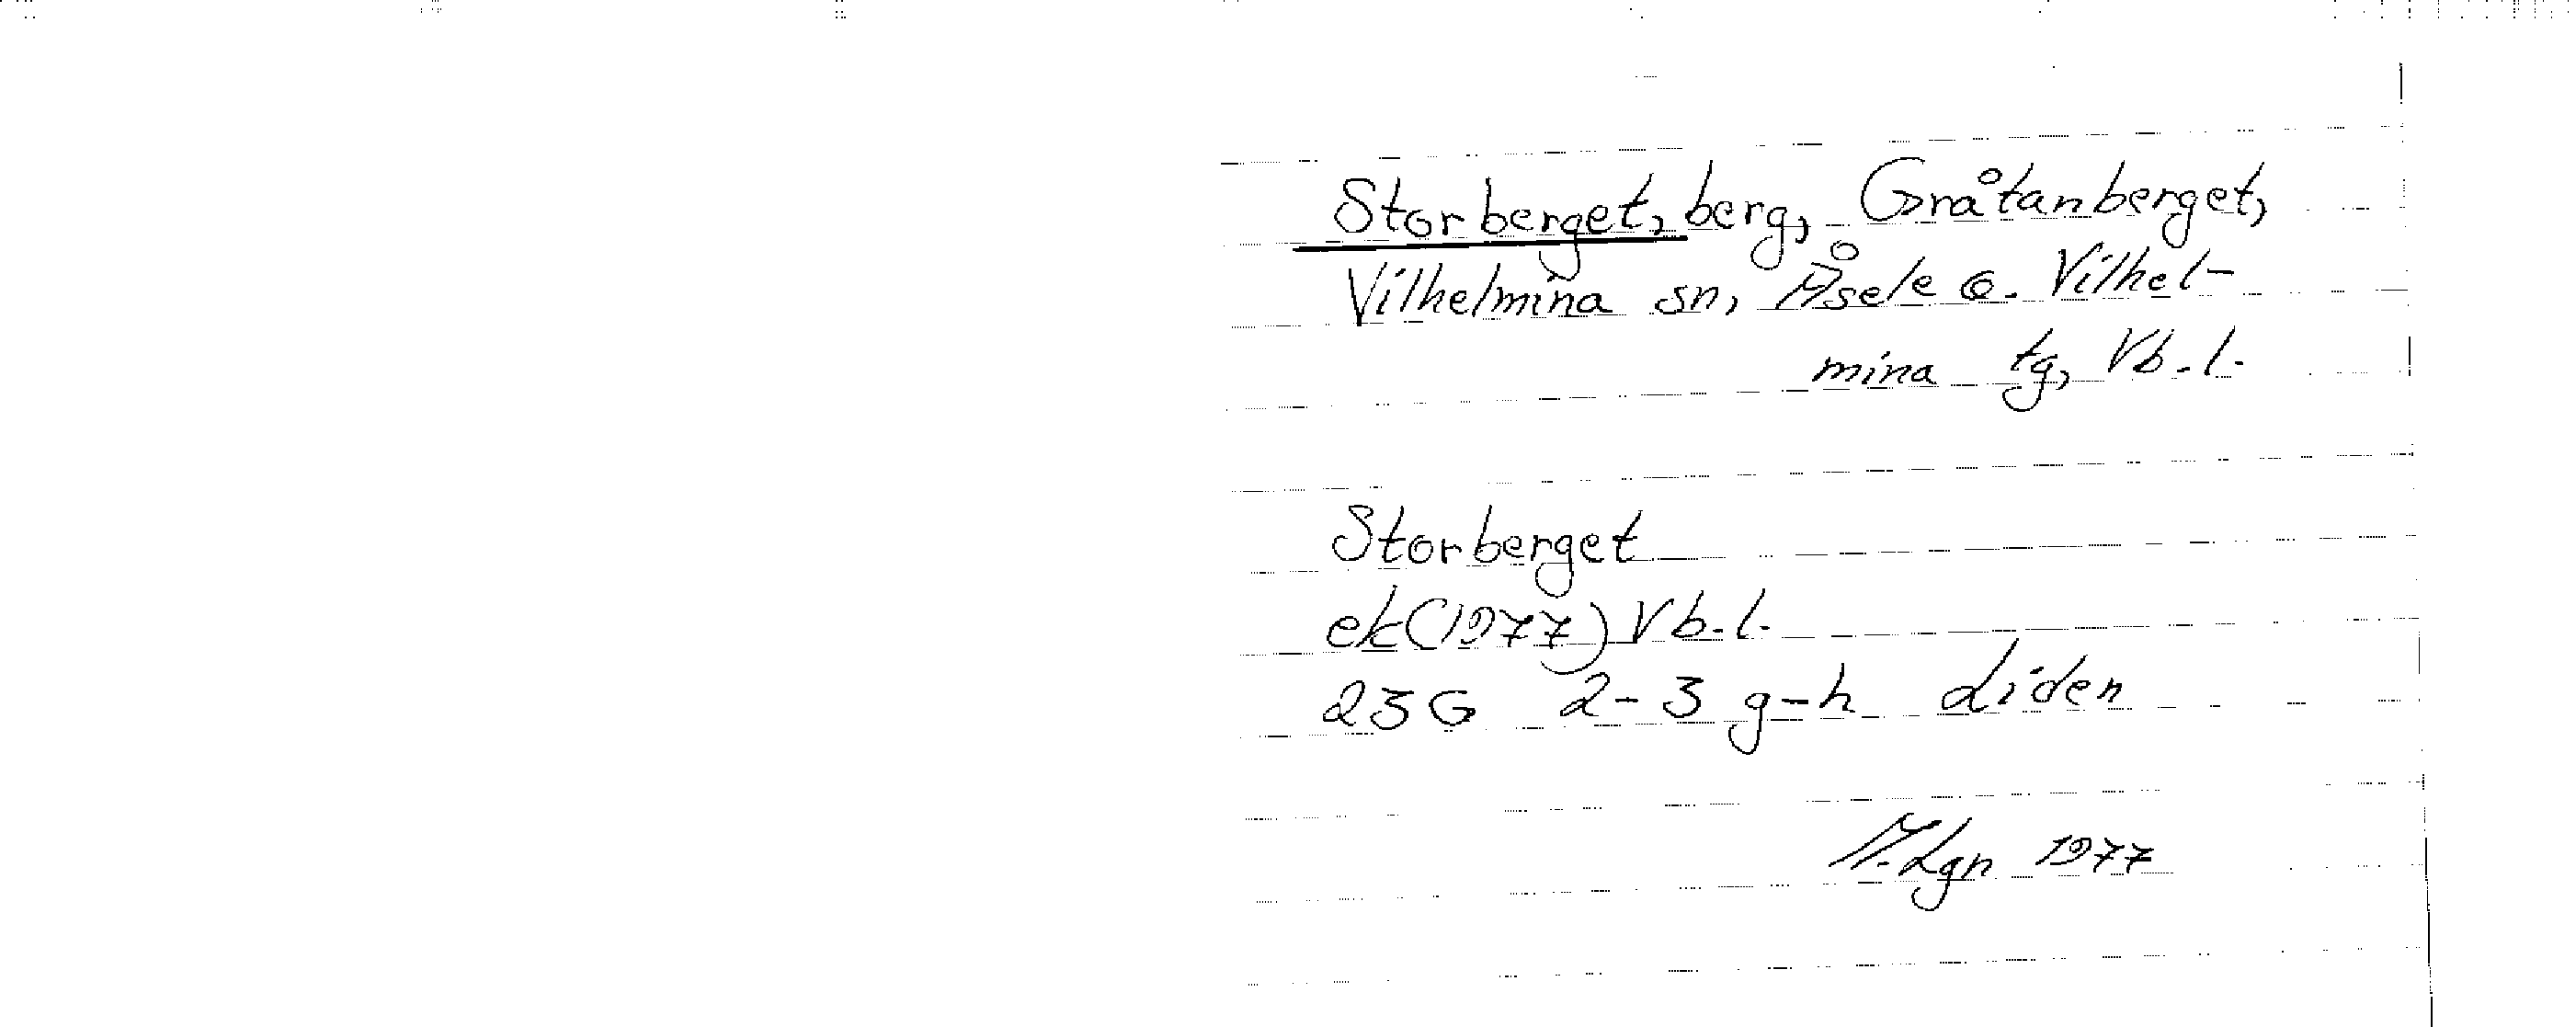 Storberget, berg, Gråtanberget,
Vilhelmina sn, Åsele o. Vilhel-
mina tg, Vb.l.
Storberget
ek(1977) Vb.l.
23G 2-3 g-h Liden
A.Lgn 1977